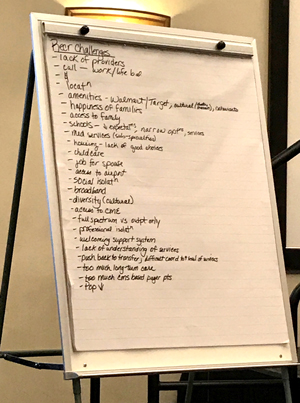 Recr Challenges
- lack of providers
- call — work/life bal
- $
- locatⁿ
- amenities - Walmart/Target, cultural
- happiness of families
- access to family
- schools - ↓ expectⁿˢ, narrow optⁿˢ, services
- med services (sub-specialties)
- housing - lack of good choices
- childcare
- job for spouse
- access to airport
- social isolatⁿ
- broadband
- diversity (cultural)
- access to CME
- full spectrum vs outpt only
- professional isolatⁿ
- welcoming support system
- lack of understanding of services
- push back to transfer, difficult coord to level of services
- too much long-term care
- too much cms based payer pts
- pop ↓